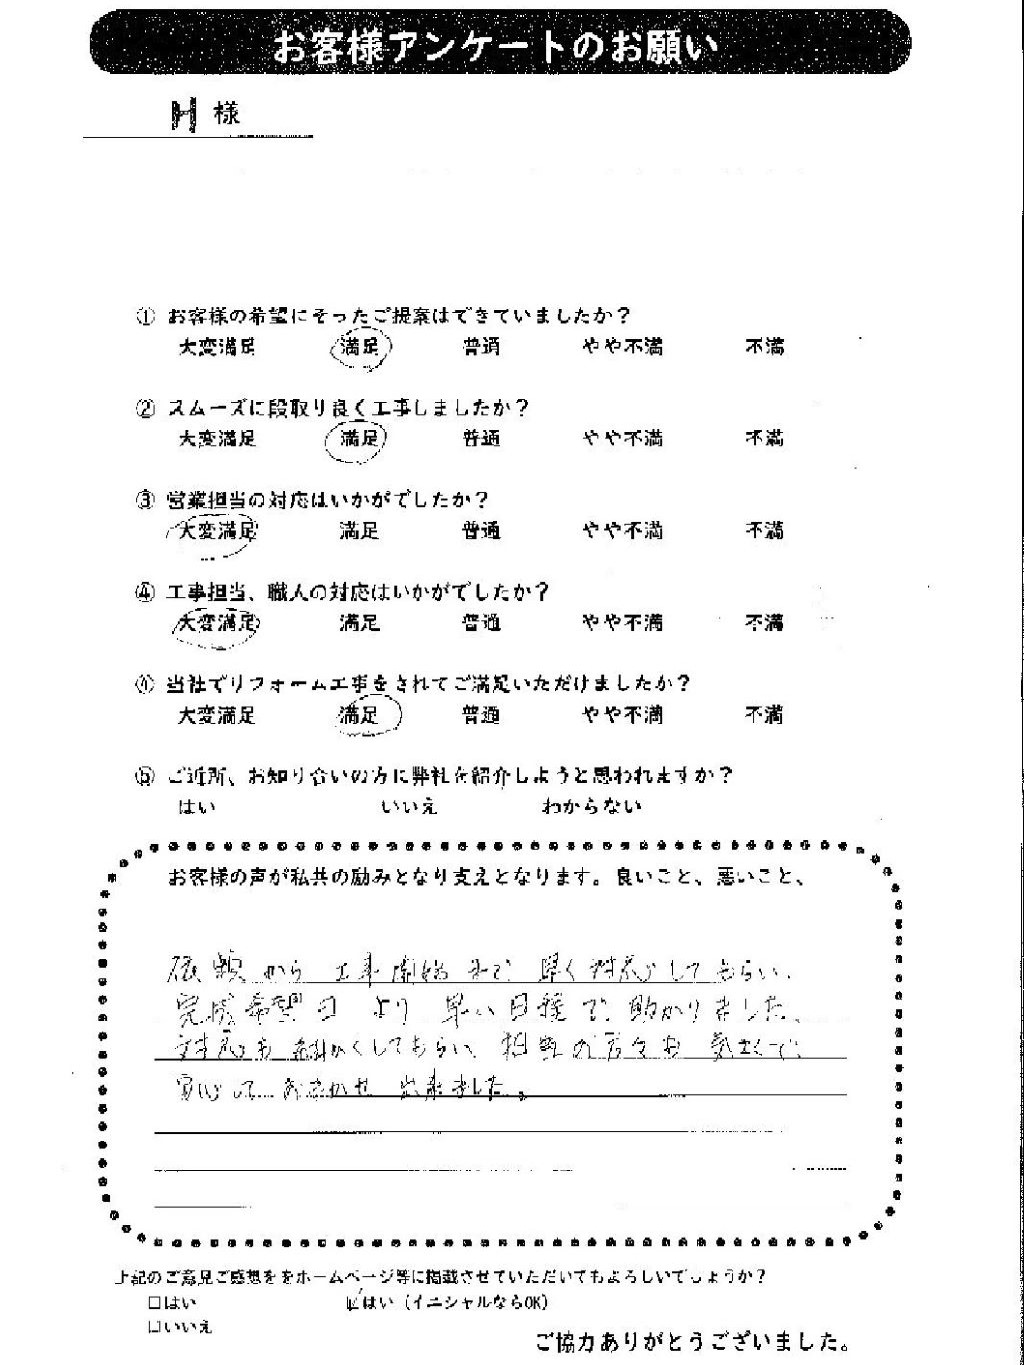 お客様アンケートのお願い
H 様
① お客様の希望にそったご提案はできていましたか？
大変満足 満足 普通 やや不満 不満
② スムーズに段取り良く工事しましたか？
大変満足 満足 普通 やや不満 不満
③ 営業担当の対応はいかがでしたか？
大変満足 満足 普通 やや不満 不満
④ 工事担当、職人の対応はいかがでしたか？
大変満足 満足 普通 やや不満 不満
当社でリフォーム工事をされてご満足いただけましたか？
大変満足 満足 普通 やや不満 不満
⑤ ご近所、お知り合いの方に弊社を紹介しようと思われますか？
はい いいえ わからない
お客様の声が私共の励みとなり支えとなります。良いこと、悪いこと、
依頼から 工事開始まで 早く対応してもらい、
完成希望日 より 早い日程で 助かりました。
対応も 細かくしてもらい、担当の方々も 気さくで、
安心して おまかせ 出来ました。
上記のご意見ご感想ををホームページ等に掲載させていただいてもよろしいでしょうか？
□はい ☑はい（イニシャルならOK）
□いいえ
ご協力ありがとうございました。